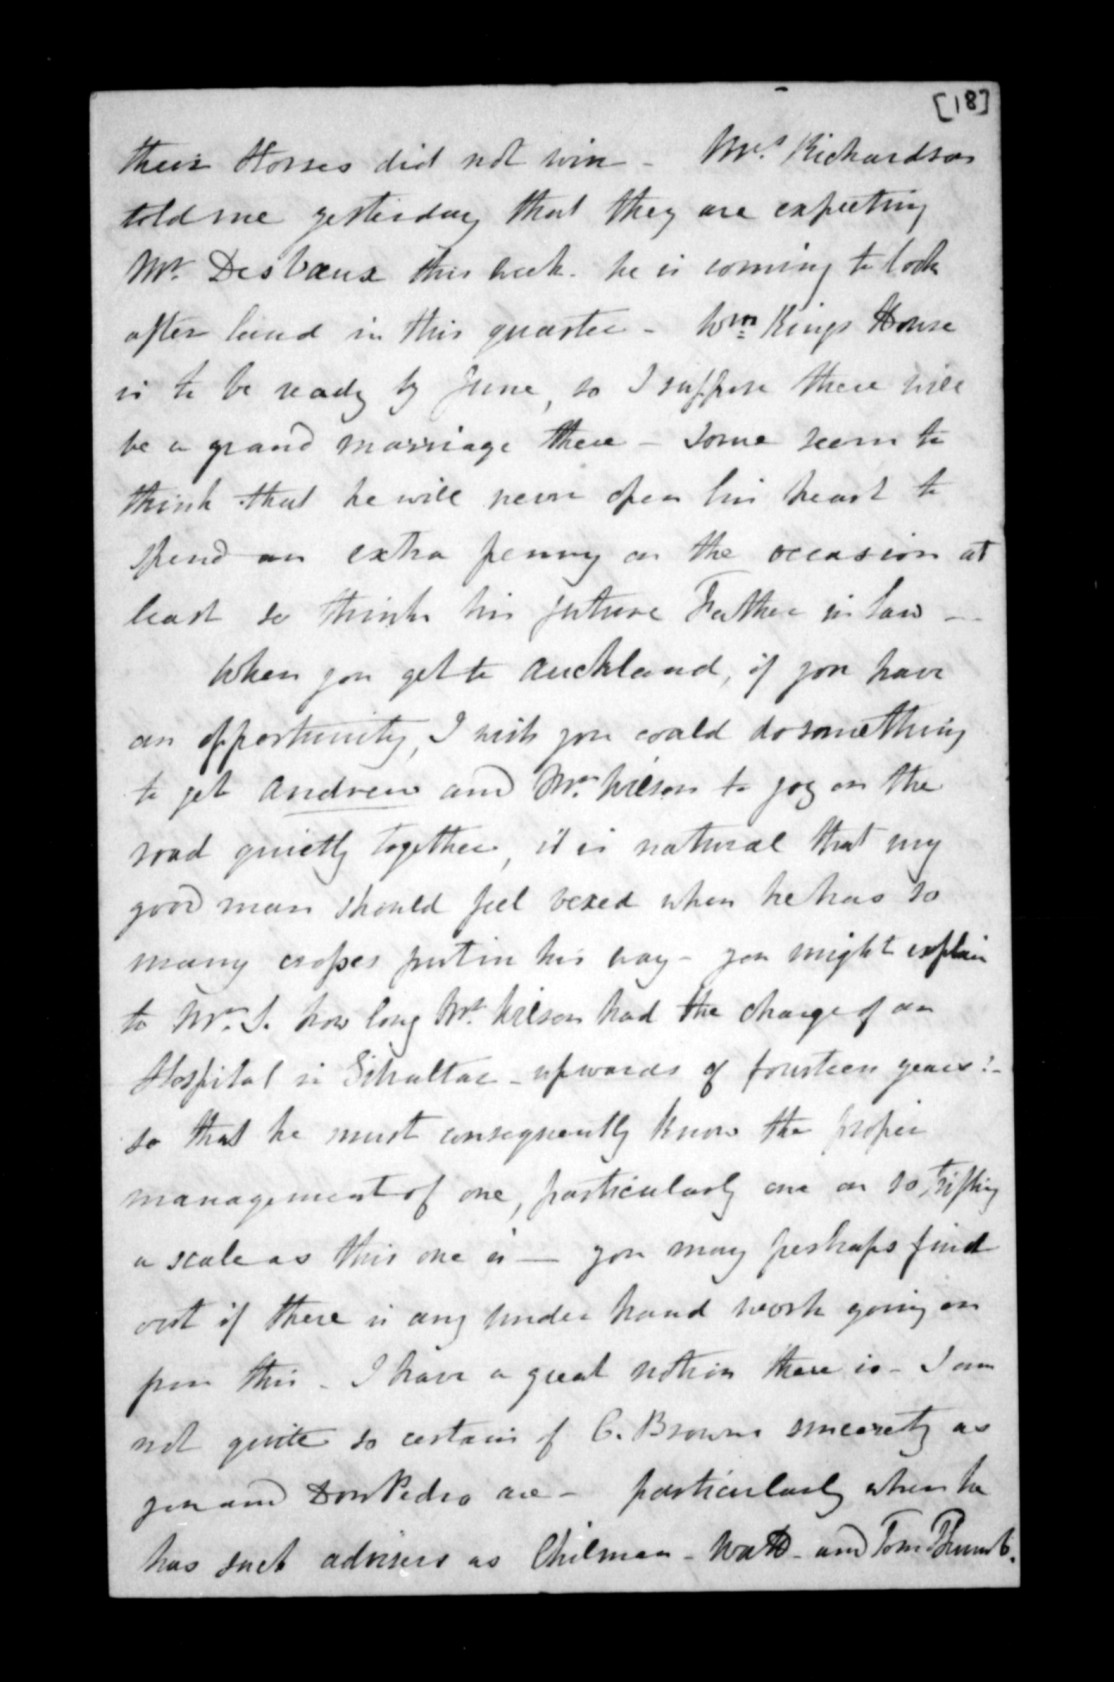 [18]
their Horses did not win - Mrs. Richardson
told me yesterday that they are expecting
Mr. DesVaux this week. he is coming to look
after land in this quarter - Wm. Kings House
is to be ready by June, so I suppose there will
be a grand marriage there - Some seem to
think that he will never open his heart to
spend an extra penny on the occasion at
least so thinks his future Father in law --
When you get to Auckland, if you have
an opportunity, I wish you could do something
to get Andrew and Mr. Wilson to jog on the
road quietly together, it is natural that my
good man should feel vexed when he has so
many crosses put in his way - you might explain
to Mr. S. how long Mr. Wilson had the charge of an
Hospital in Gibraltar - upwards of fourteen years! -
so that he must consequently know the proper
management of one, particularly one on so trifling
a scale as this one is — you may perhaps find
out if there is any under hand work going on
from this - I have a great notion there is - I am
not quite so certain of C. Browns sincerety as
you and Don Pedro are - particularly when he
has such advisers as Chilman - Watt - and Tom Thumb.